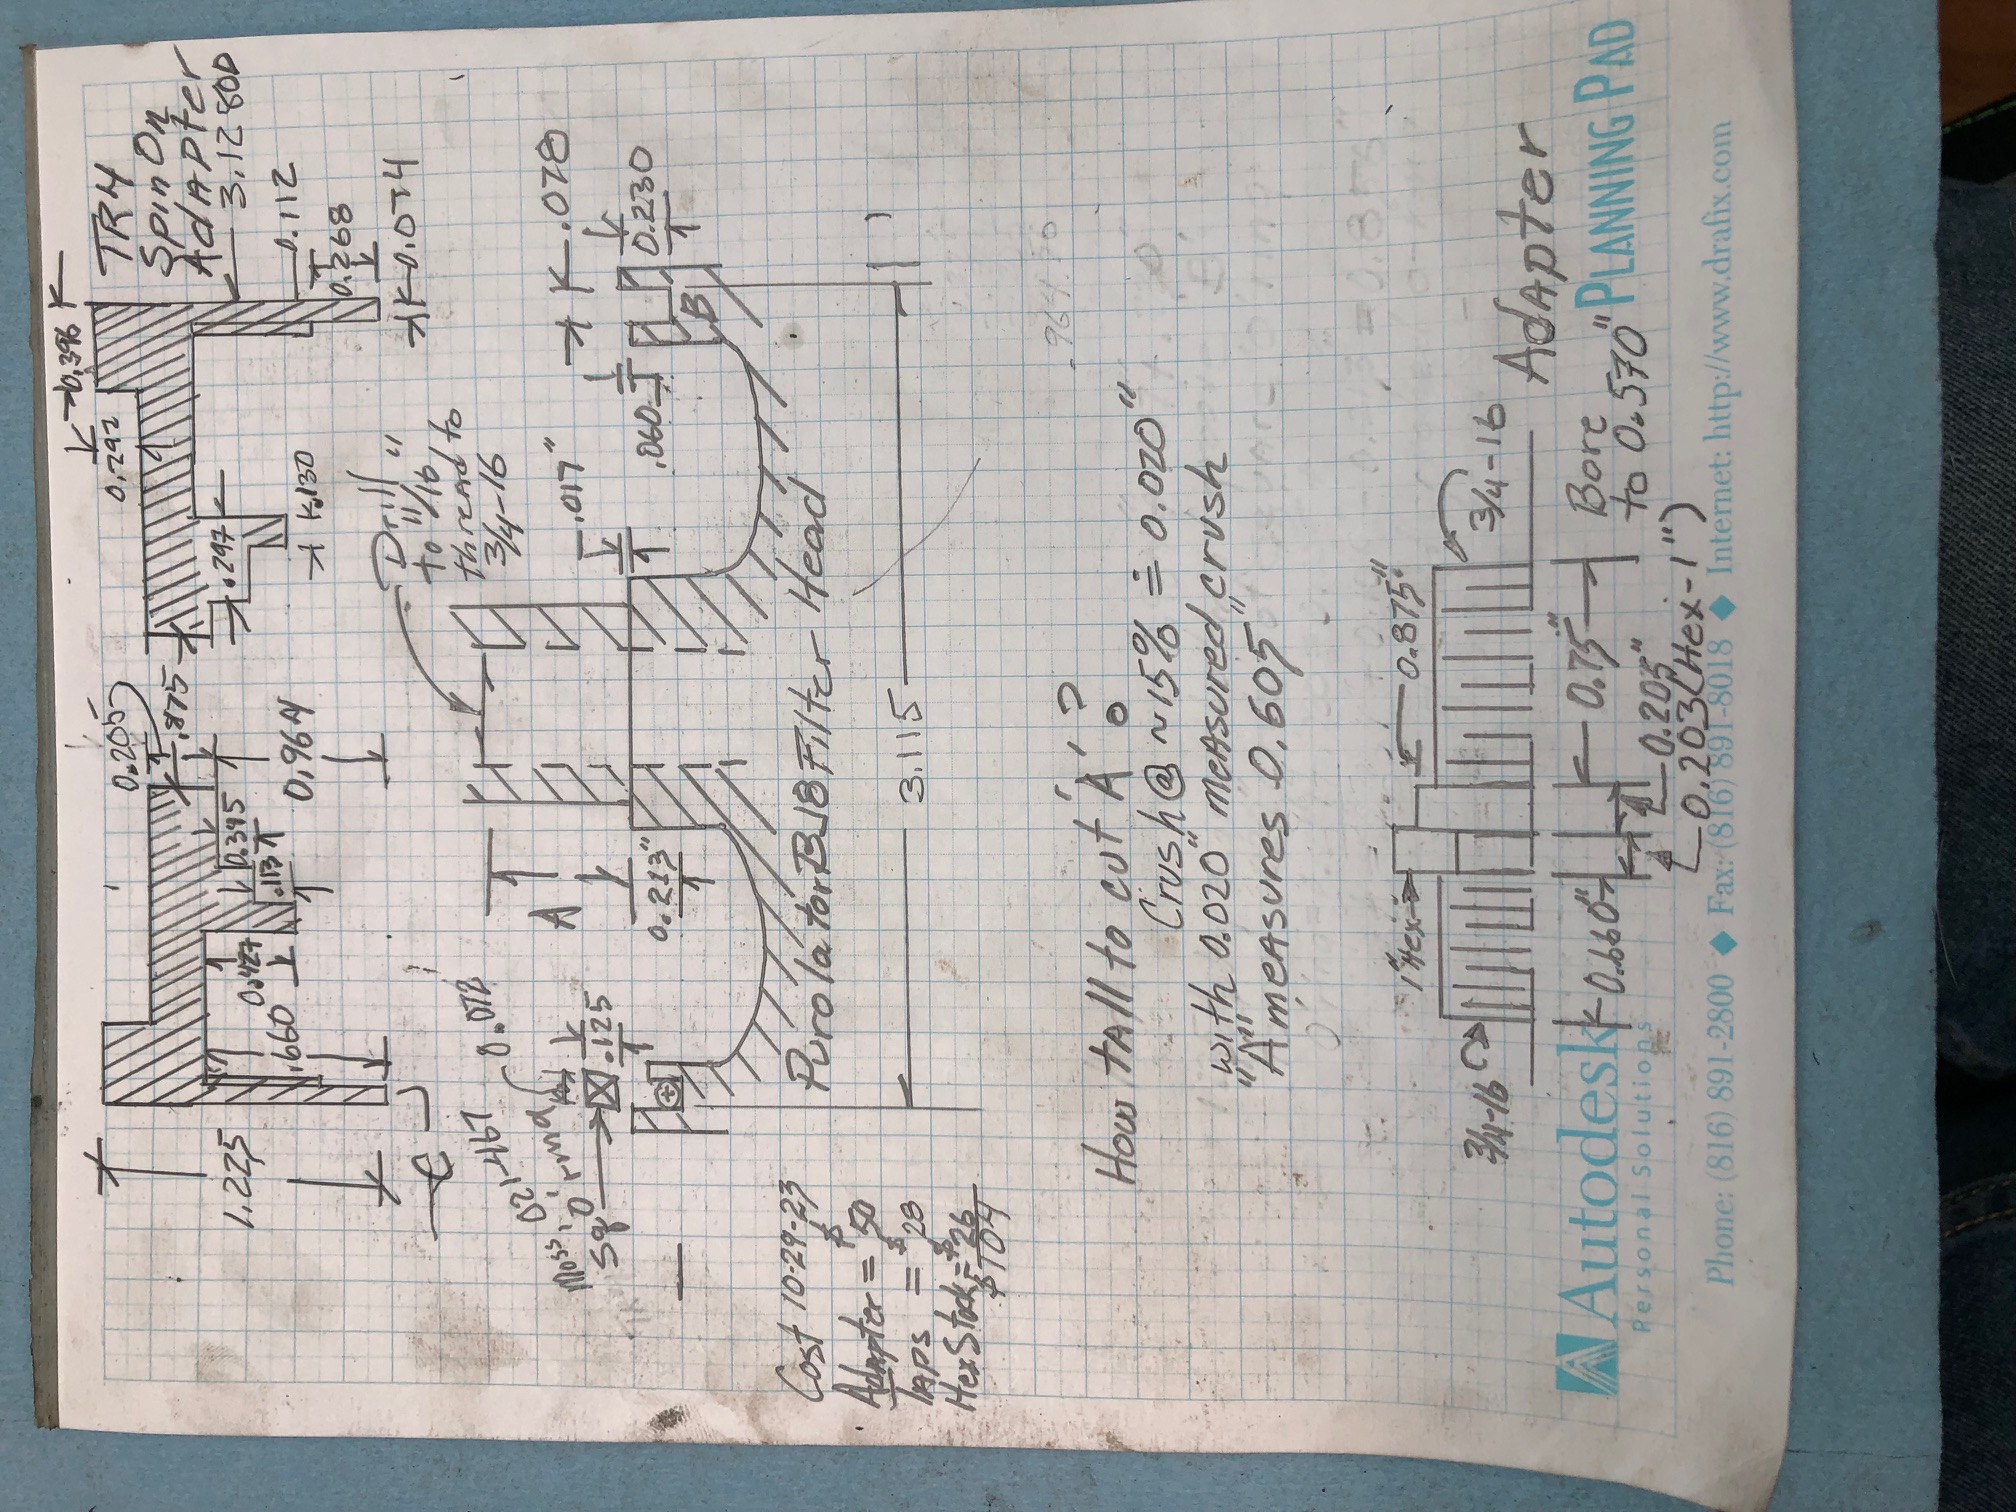 TR4
Spin On
Adapter
3.128OD
0.396
0.292
0.205
.875
0.112
0.268
0.074
.297
.130
0.395
.113
0.964
0.427
.660
1.225
Drill
to 11/16"
thread to
3/4-16
.467
0.078
.017"
.078
.060
0.230
A
B
C
0.213"
.125
Sq 'O' ring
Purolator B18 Filter Head
3.115
Cost 10-29-23
Adapter = $50
Taps = $28
Hex Stock = $26
$104
How tall to cut 'A'?
Crush @ ~15% = 0.020"
with 0.020 measured "crush
"A" measures 0.605"
.964
1" Hex
0.875"
3/4-16
3/4-16
Adapter
0.660"
0.75"
Bore
to 0.570"
0.205"
0.203 (Hex-1")
Autodesk
Personal Solutions
PLANNING PAD
Phone: (816) 891-2800 ◆ Fax: (816) 891-8018 ◆ Internet: http://www.drafix.com